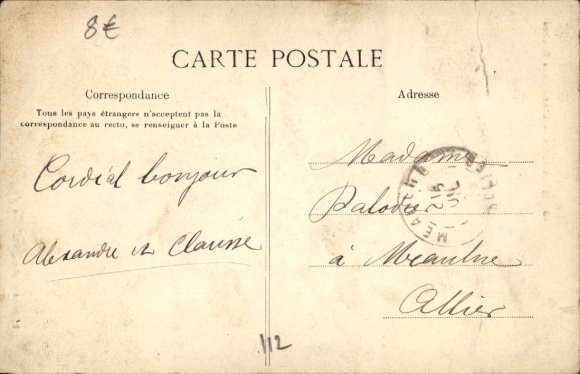 8€
CARTE POSTALE
Correspondance
Adresse
Tous les pays étrangers n'acceptent pas la
correspondance au recto, se renseigner à la Poste
Cordial bonjour
Alexandre et Clarisse
Madame
Palodier
à Meaulne
Allier
112